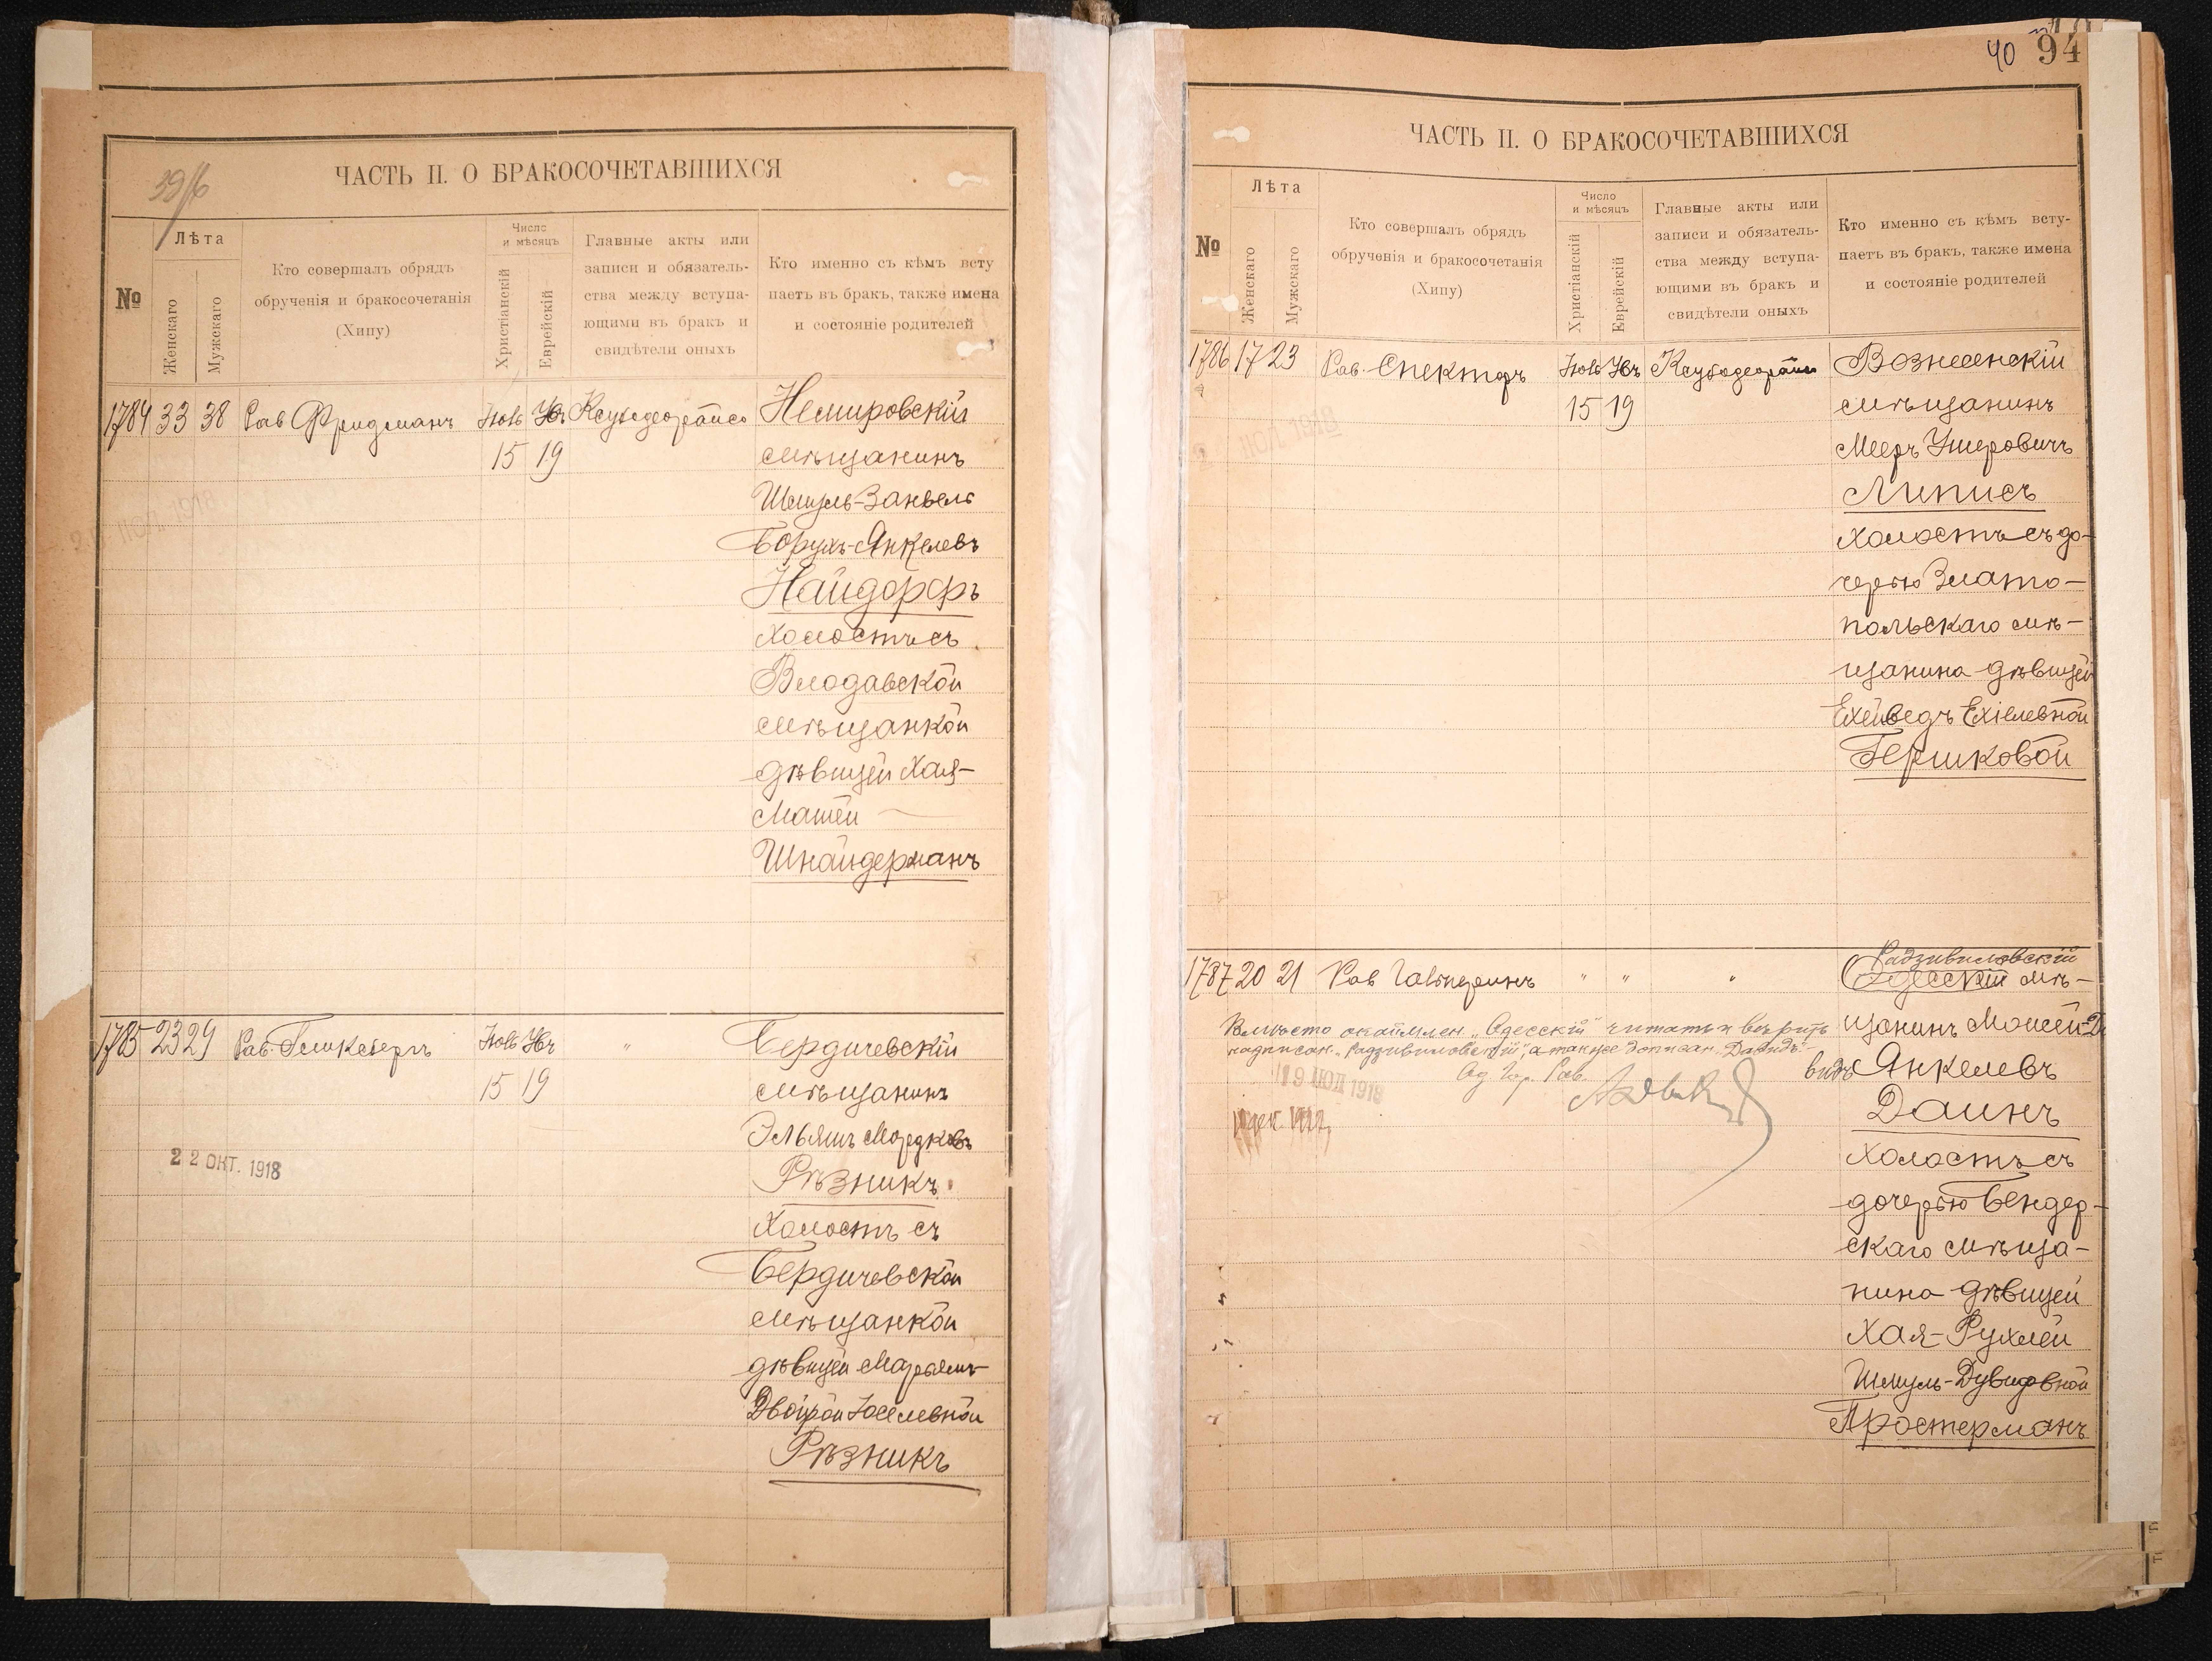 39/6
ЧАСТЬ II. О БРАКОСОЧЕТАВШИХСЯ
№
Лѣта
Женскаго
Мужскаго
Кто совершалъ обрядъ
обрученія и бракосочетанія
(Хипу)
Число
и мѣсяцъ
Христіанскій
Еврейскій
Главные акты или
записи и обязатель-
ства между вступа-
ющими въ бракъ и
свидѣтели оныхъ
Кто именно съ кѣмъ всту
паетъ въ бракъ, также имена
и состояніе родителей
1784 33 38 Рав Фридманъ Нояб Хш Ксубедеорайсо Немировскій
15 19 мѣщанинъ
Шмуль-Занвель
Борухъ-Янкелевъ
Найдорфъ
холостъ съ
Влодавской
мѣщанкой
дѣвицей Хая-
Матей
Шнайдерманъ
1785 23 29 Рав. Гликсбергъ Нояб Хш " Бердичевскій
15 19 мѣщанинъ
Эльяшъ Мордковъ
Рѣзникъ
холостъ съ
22 ОКТ. 1918
Бердичевской
мѣщанкой
дѣвицей Марьямъ-
Двойрой Іоселевной
Рѣзникъ
40 94
ЧАСТЬ II. О БРАКОСОЧЕТАВШИХСЯ
№
Лѣта
Женскаго
Мужскаго
Кто совершалъ обрядъ
обрученія и бракосочетанія
(Хипу)
Число
и мѣсяцъ
Христіанскій
Еврейскій
Главные акты или
записи и обязатель-
ства между вступа-
ющими въ бракъ и
свидѣтели оныхъ
Кто именно съ кѣмъ всту-
паетъ въ бракъ, также имена
и состояніе родителей
1786 17 23 Рав. Спекторъ Нояб Хш Ксубедеорайсо Вознесенскій
15 19 мѣщанинъ
Мееръ Ушеровичъ
Липисъ
холостъ съ до-
черью Злато-
польскаго мѣ-
щанина дѣвицей
Ехейведъ Ехіелевной
Гершковой
1787 20 21 Рав Гальперинъ " " " Радзивиловскій
Одесскій мѣ-
щанинъ Мошей-Да
видъ Янкелевъ
Даинъ
холостъ съ
дочерью Бендер-
скаго мѣща-
нина дѣвицей
Хая-Рухлей
Шмуль-Дувидовной
Простерманъ
Вмѣсто окаймлен. „Одесскій" читать и вѣрить
надписан. „Радзивиловскій", а также дописан. „Давидъ".-
Од. Гор. Рав.
19 ИЮЛ 1918